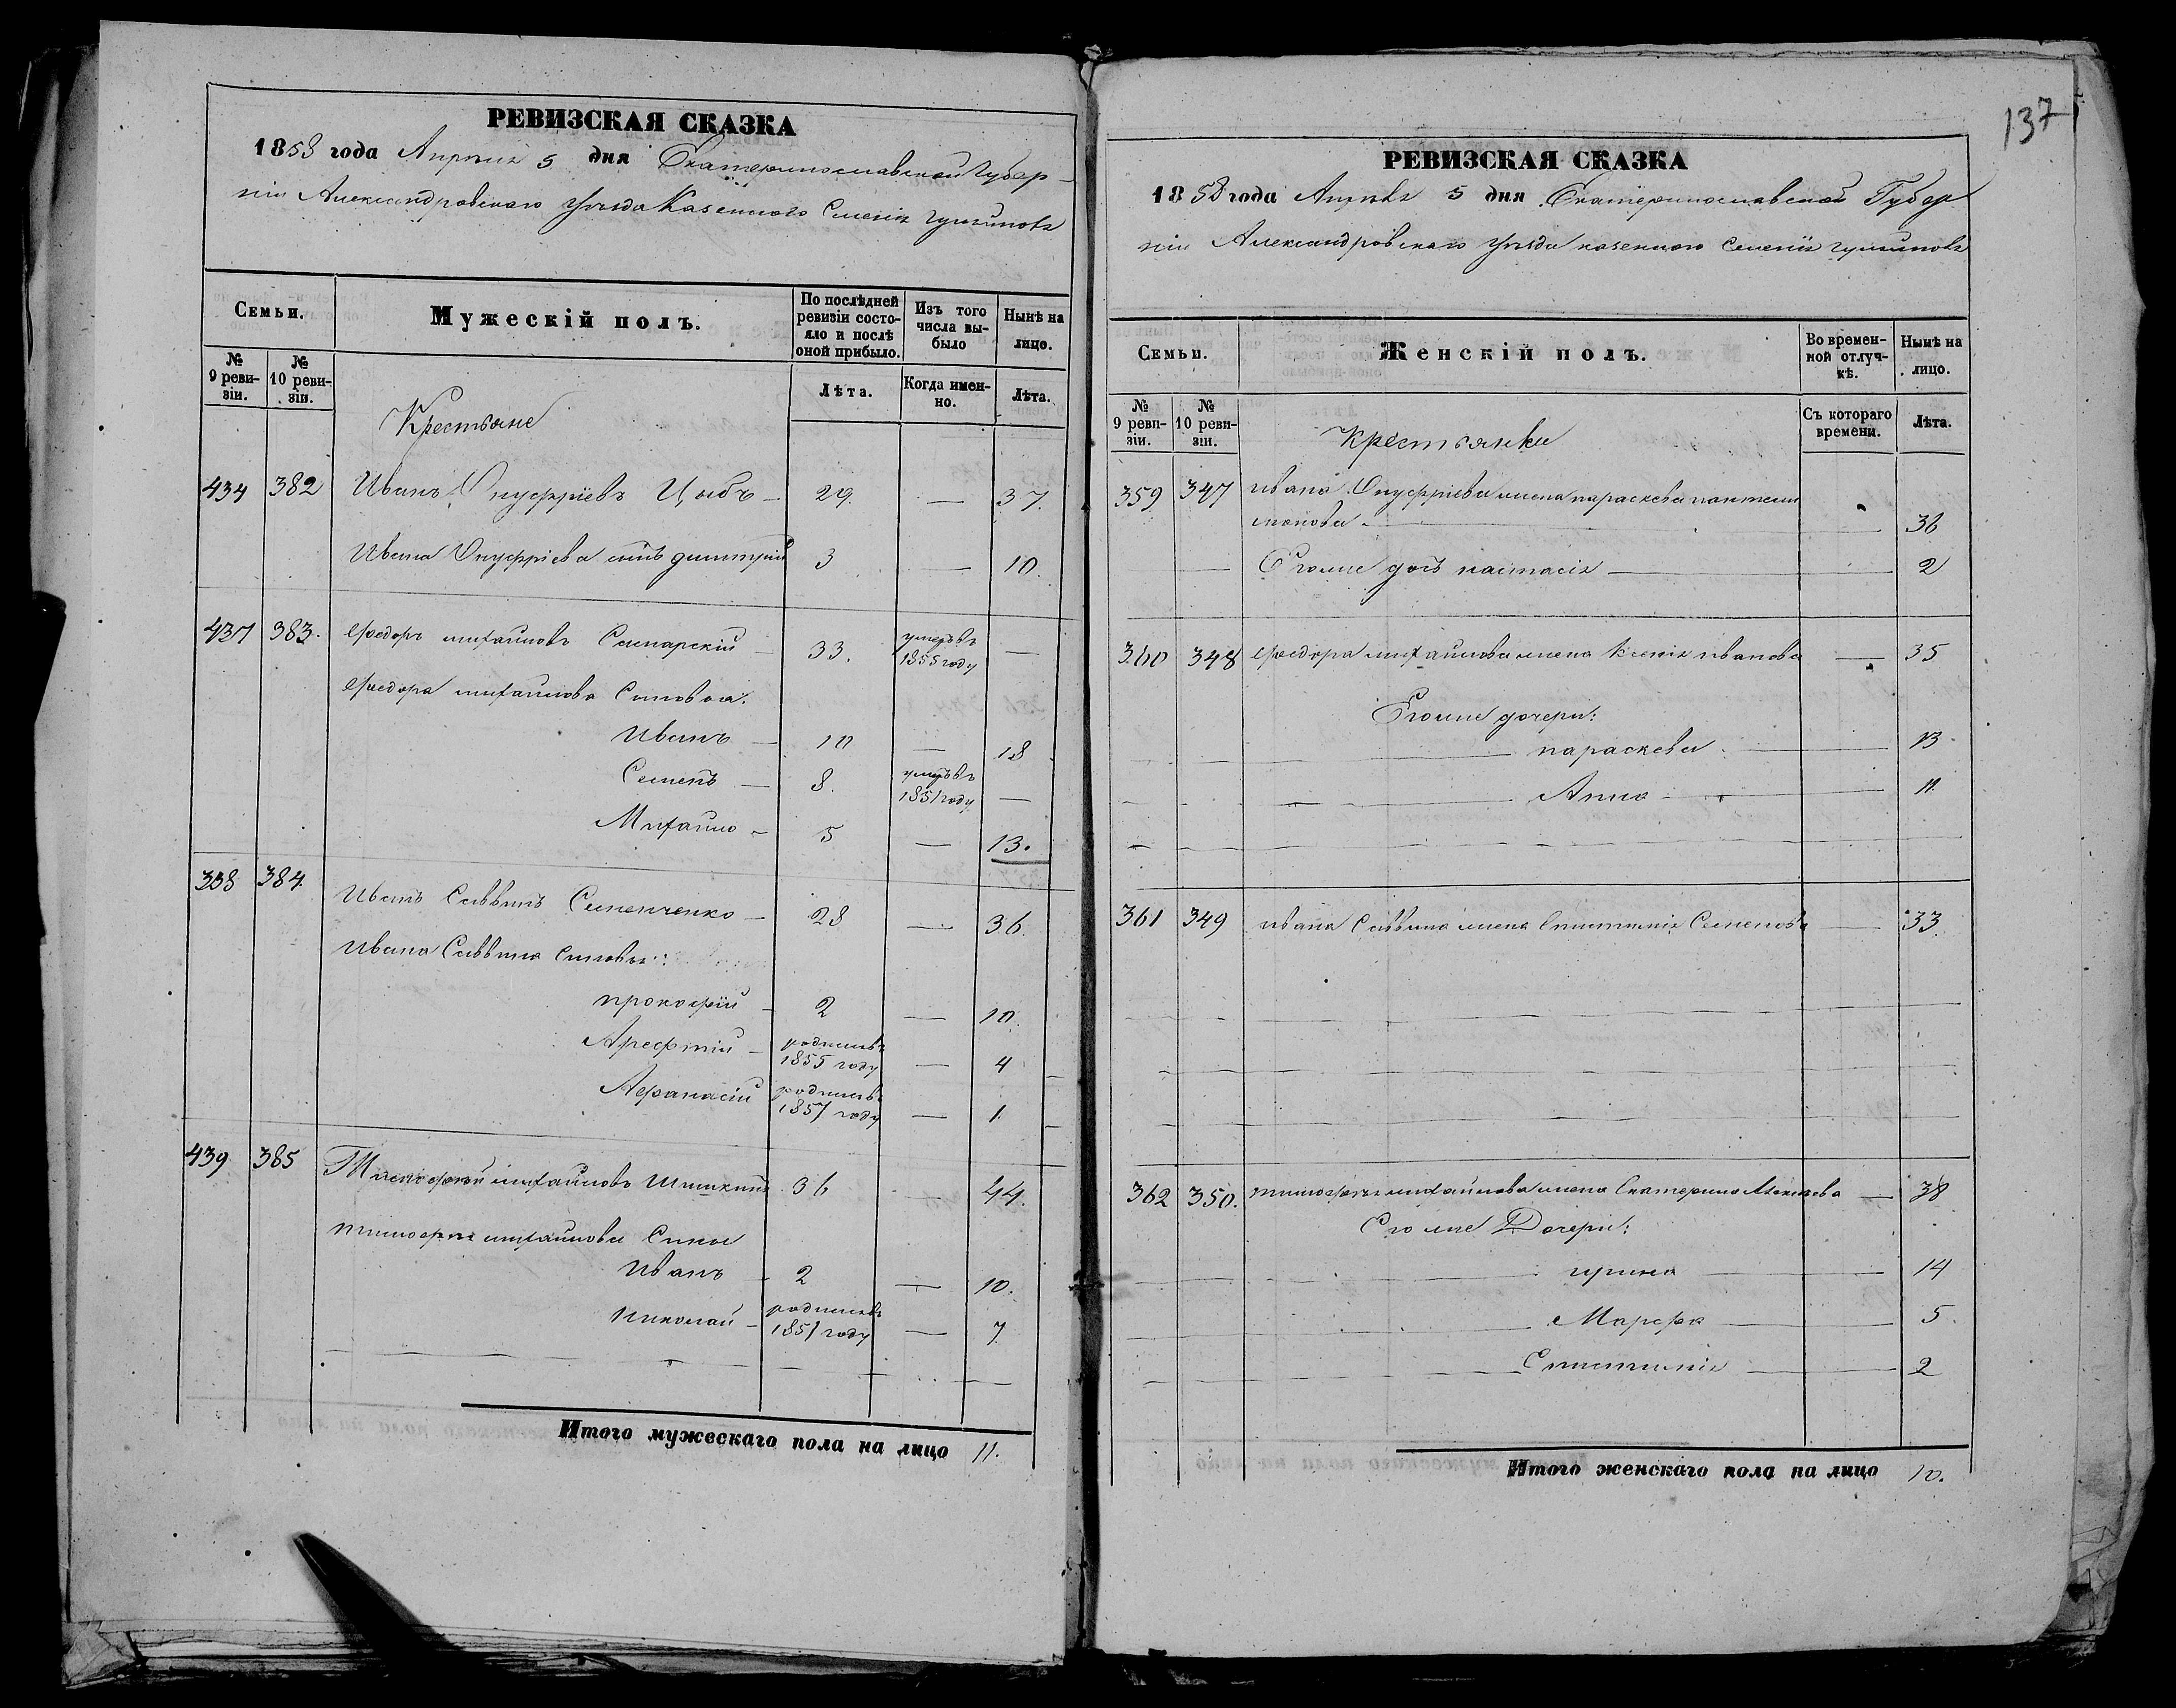 РЕВИЗСКАЯ СКАЗКА
1858 года Апреля 5 дня Екатеринославской Губер-
ніи Александровскаго уѣзда Казеннаго Селенія
Семьи.
Мужескій полъ.
По послѣдней ревизіи состояло и послѣ оной прибыло.
Изъ того числа выбыло
Нынѣ на лицо.
№ 9 ревизіи.
№ 10 ревизіи.
Лѣта.
Когда именно.
Лѣта.
Крестьяне
434 382 Иванъ Онуфріевъ Цыбъ — 29. — 37.
Ивана Онуфріева сынъ димитрій 3 — 10.
437 383. Федоръ михайловъ Самарскій — 33. умеръ въ 1855 году —
Федора михайлова Сыновья:
Иванъ — 10 — 18
Семенъ — 8. умеръ въ 1851 году —
Михайло — 5 — 13.
338 384. Иванъ Саввинъ Семенченко — 28 — 36.
Ивана Саввина Сыновья:
прокофій — 2 — 10.
Арефтій — родился въ 1855 году — 4
Афанасій родился въ 1857 году — 1
439 385 Тимофей михайловъ Шишкинъ 36 — 44.
тимофея михайлова Сыны
Иванъ — 2 — 10.
николай — родился въ 1851 году — 7
Итого мужескаго пола на лицо 11.
137
РЕВИЗСКАЯ СКАЗКА
1858 года Апреля 5 дня Екатеринославской Губер
ніи Александровскаго уѣзда казеннаго Селенія
Семьи.
Женскій полъ.
Во временной отлучкѣ.
Нынѣ на лицо.
№ 9 ревизіи.
№ 10 ревизіи.
Съ котораго времени.
Лѣта.
Крестьянки
359 347 ивана Онуфріева жена параскева пантели
монова — 36
Его же дочь настасія — 2
360 348 Федора михайлова жена Ксенія иванова — 35
Его же дочери:
параскева — 13
Анна — 11
361 349 ивана Саввина жена Епистимія Семенова — 33
362 350. тимофея михайлова жена Екатерина Алексеева — 38
Его же Дочери:
ирина — 14
Марфа — 5.
Епистимія — 2
Итого женскаго пола на лицо 10.